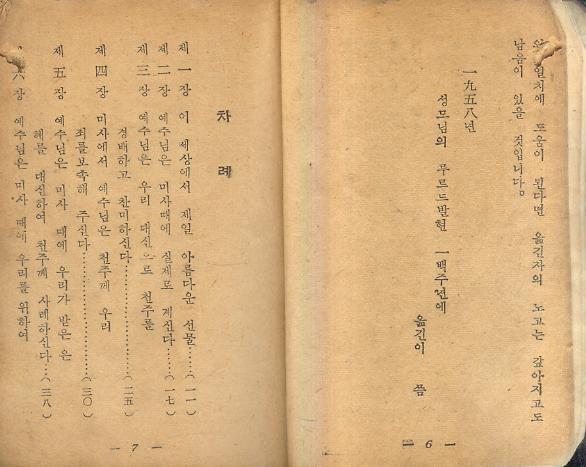 일치에 도움이 된다면 옮긴자의 노고는 갚아지고도
남음이 있을 것입니다。
一九五八년
성모님의 루르드발현 一백주년에
옮긴이 씀
— 6 —
차례
제一장 이 세상에서 제일 아름다운 선물……(一一)
제二장 예수님은 미사때에 실제로 계신다……(一七)
제三장 예수님은 우리 대신으로 천주를
경배하고 찬미하신다…………(二五)
제四장 미사에서 예수님은 천주께 우리
죄를 보속해 주신다…………(三〇)
제五장 예수님은 미사 때에 우리가 받은 은
혜를 대신하여 천주께 사례하신다…(三八)
六장 예수님은 미사 때에 우리를 위하여
— 7 —